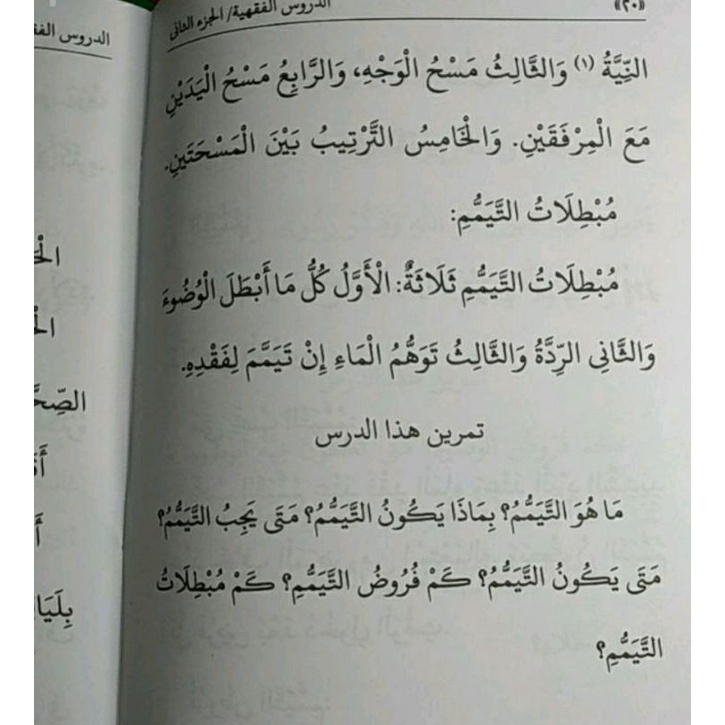 «٢٠»
الدروس الفقهية/ الجزء الثانى
النِّيَّةُ (١) وَالثَّالِثُ مَسْحُ الْوَجْهِ، وَالرَّابِعُ مَسْحُ الْيَدَيْنِ
مَعَ الْمِرْفَقَيْنِ. وَالْخَامِسُ التَّرْتِيبُ بَيْنَ الْمَسْحَتَيْنِ.
مُبْطِلَاتُ التَّيَمُّمِ:
مُبْطِلَاتُ التَّيَمُّمِ ثَلَاثَةٌ: الْأَوَّلُ كُلُّ مَا أَبْطَلَ الْوُضُوءَ
وَالثَّانِى الرِّدَّةُ وَالثَّالِثُ تَوَهُّمُ الْمَاءِ إِنْ تَيَمَّمَ لِفَقْدِهِ.
تمرين هذا الدرس
مَا هُوَ التَّيَمُّمُ؟ بِمَاذَا يَكُونُ التَّيَمُّمُ؟ مَتَى يَجِبُ التَّيَمُّمُ؟
مَتَى يَكُونُ التَّيَمُّمُ؟ كَمْ فُرُوضُ التَّيَمُّمِ؟ كَمْ مُبْطِلَاتُ
التَّيَمُّمِ؟
الدروس